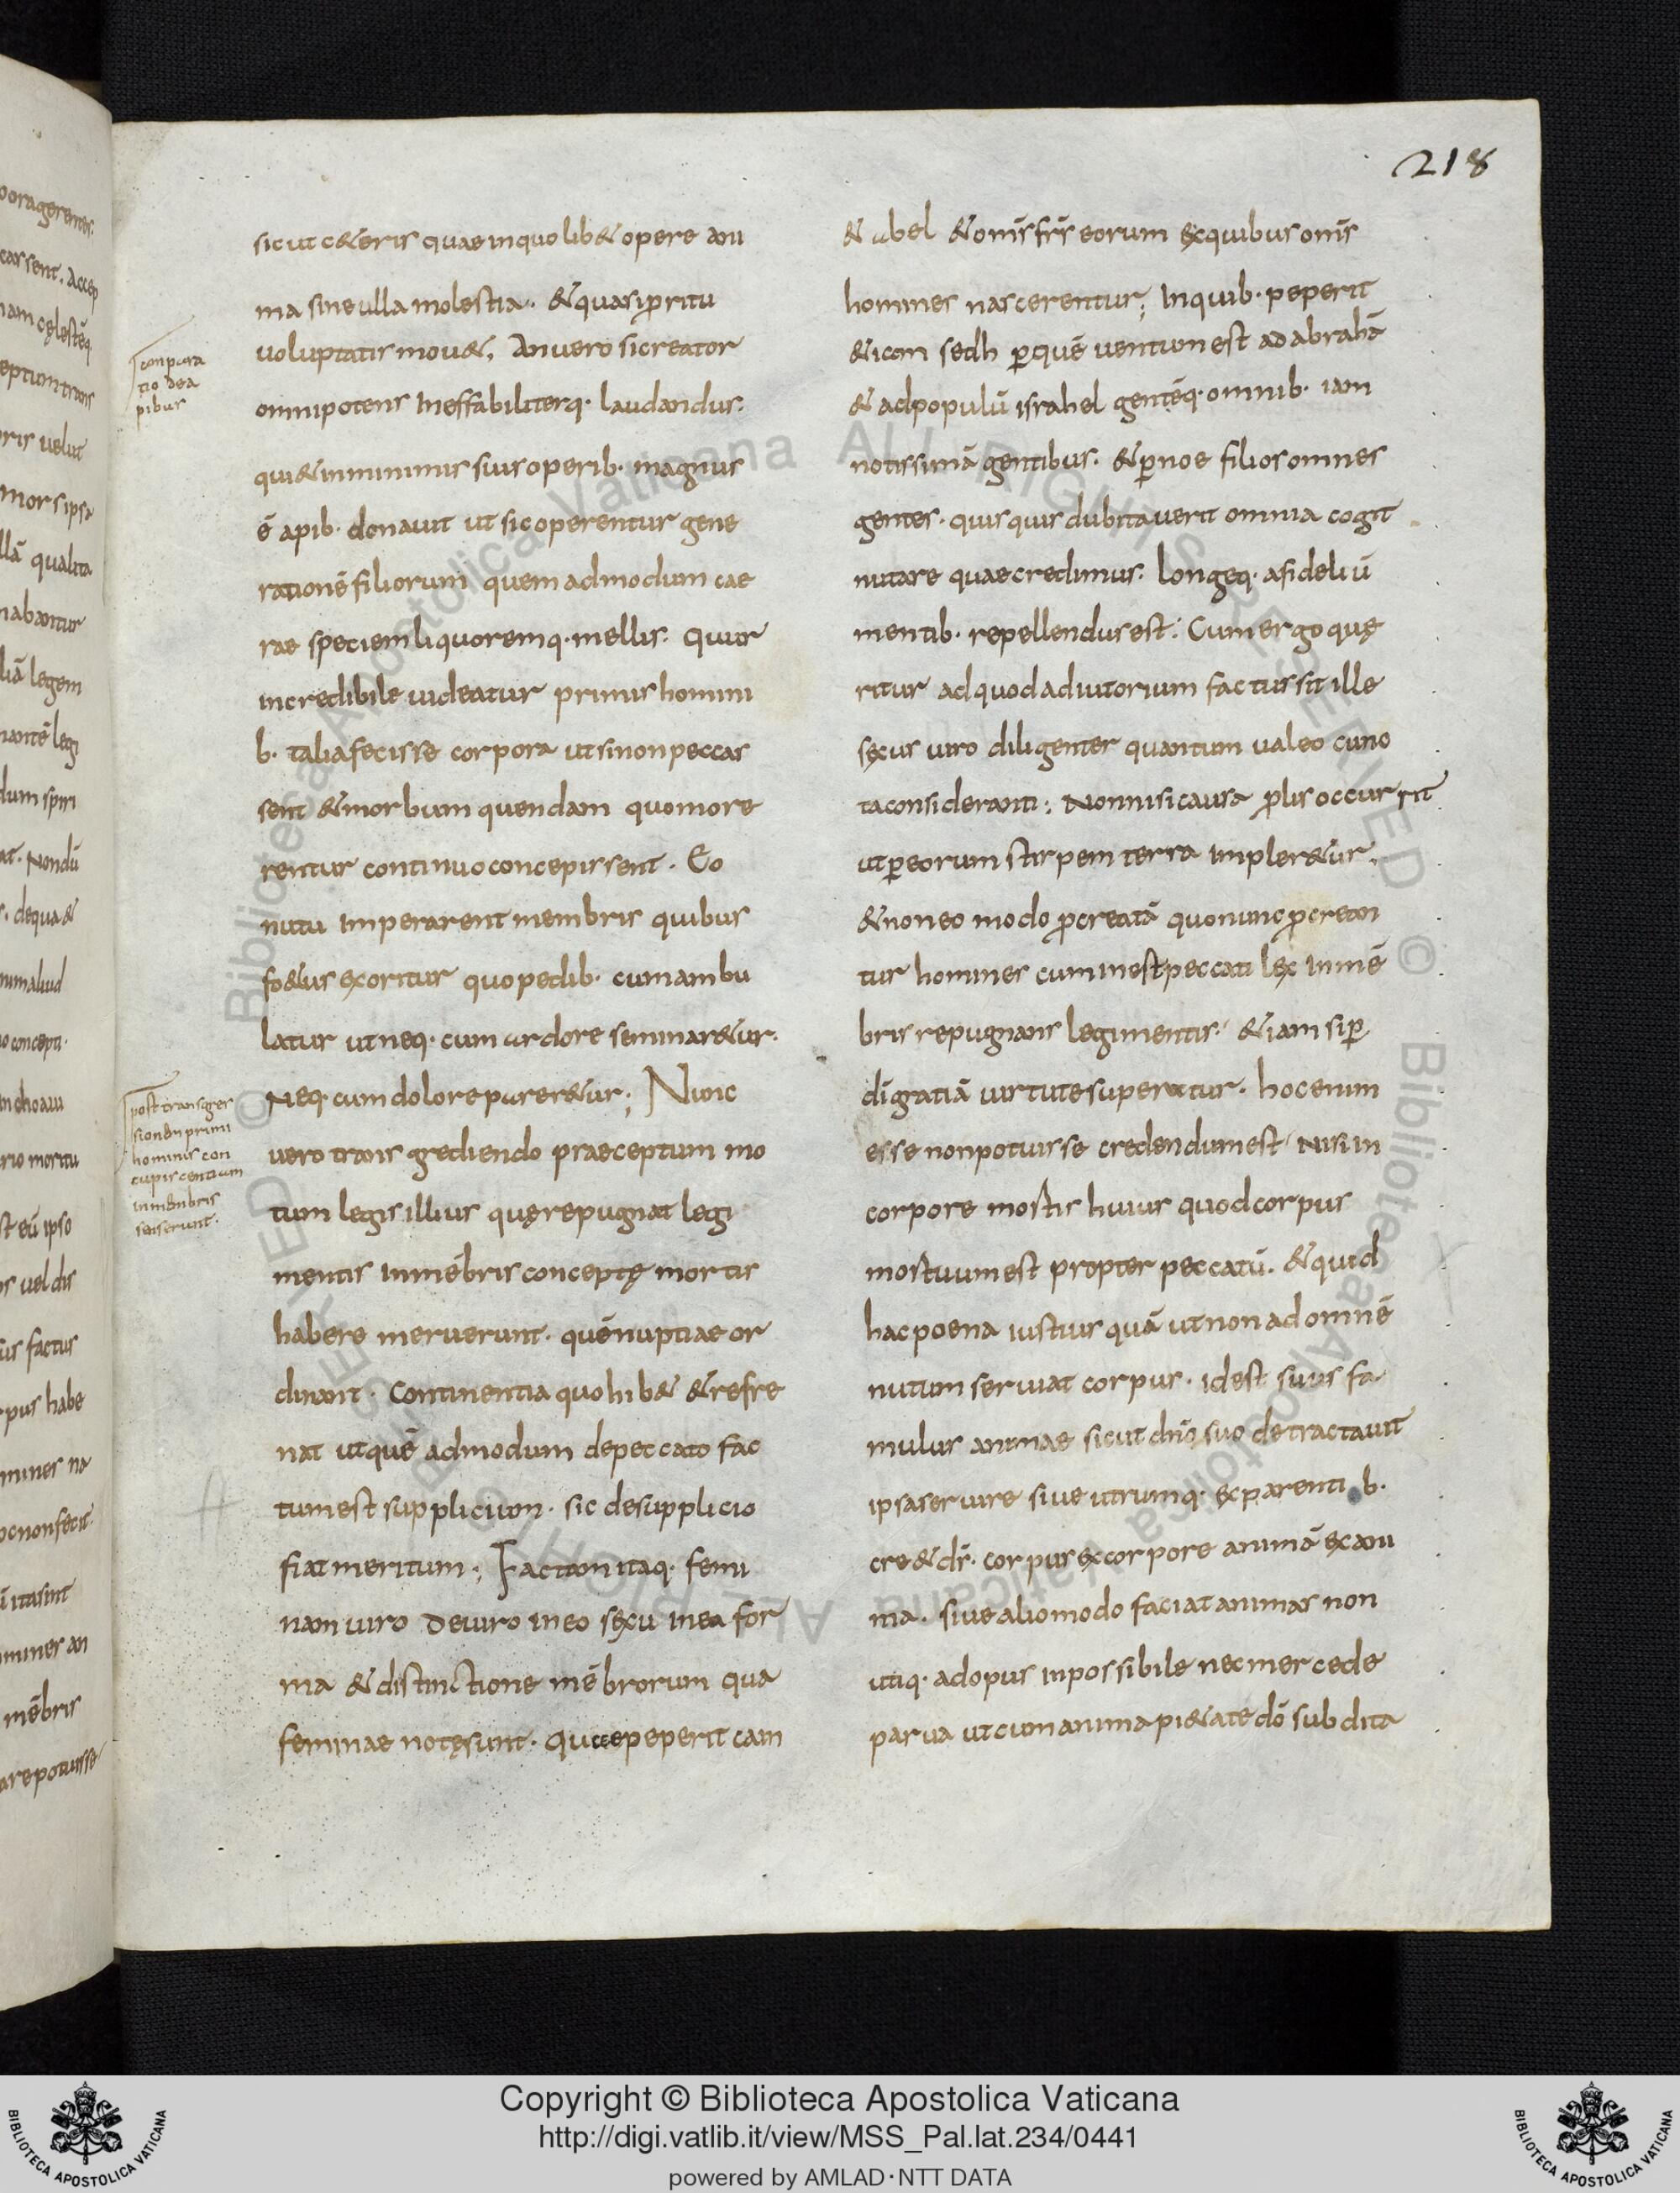 218
sicut c&eris quae in quolib& opere ani
ma sine ulla molestia. & quasi pritu
voluptatis mou&, An vero si creator
omnipotens Ineffabiliterq· laudandus.
qui & in minimis suis operib· magnus
ē apib· donauit ut sic operentur gene
rationē filiorum quemadmodum cae
rae speciem liquoremq· mellis. Quur
incredibile uideatur primis homini
b· talia fecisse corpora ut si non peccas
sent & morbum quendam quo more
rentur continuo concepissent. Eo
nutu Imperarent membris quibus
fo&us excoritur quo pedib· cum ambu
latur ut neq· cum ardore seminar&ur.
Neq· cum dolore parer&ur; Nunc
uero transgrediendo praeceptum mo
tum legis illius quę repugnat legi
mentis In mēbris conceptę mortis
habere meruerunt. quē nuptiae or
dinant. Continentia quohib& & refre
nat ut quē admodum de peccato fac
tum est supplicium. sic de supplicio
fiat meritum; Factam itaq· femi
nam uiro De uiro in eo sęxu in ea for
ma & distinctione mēbrorum qua
feminae notę sunt. Quae peperit cain
conpara
tio de a
pibus
post transgres
sionem primi
hominis con
cupiscentiam
in membris
senserunt.
& abel & om̄s fr̄s eorum ex quibus om̄s
homines nascerentur; In quib· peperit
&iam sedh p̱ quē uentum est ad abrahā
& ad populū israhel gentēq· omnib· iam
notissimā gentibus. & p̱ noe filios omnes
gentes. quis quis dubitauerit omnia cogit
nutare quae credimus. Longeq· a fideliū
mentib· repellendus est; Cum ergo quę
ritur ad quod adiutorium factus sit ille
sexus uiro diligenter quantum ualeo cuno
ta consideranti; Non nisi causa p̱lis occurrit
ut p̱ eorum stirpem terra impler&ur.
& non eo modo p̱creatā quo nunc p̱crean
tur homines cum inest peccati lex In mē
bris repugnans legi mentis. &iam si p̱
dī gratiā uirtute superatur. hoc enim
esse non potuisse credendum est Nisi in
corpore mortis huius quod corpus
mortuum est propter peccatū. & quid
hac poena iustius quā ut non ad omnē
nutum seruiat corpus. id est suus fa
mulus animae sicut dn̄o suo detractauit
ipsa seruire siue utrumq· ex parenti b·
cre& dr̄. corpus ex corpore animā ex ani
ma. siue alio modo faciat animas non
utiq· ad opus inpossibile nec mercede
parua ut cum anima pi&ate dō subdita
Copyright © Biblioteca Apostolica Vaticana
http://digi.vatlib.it/view/MSS_Pal.lat.234/0441
powered by AMLAD·NTT DATA
BIBLIOTECA APOSTOLICA VATICANA
BIBLIOTECA APOSTOLICA VATICANA